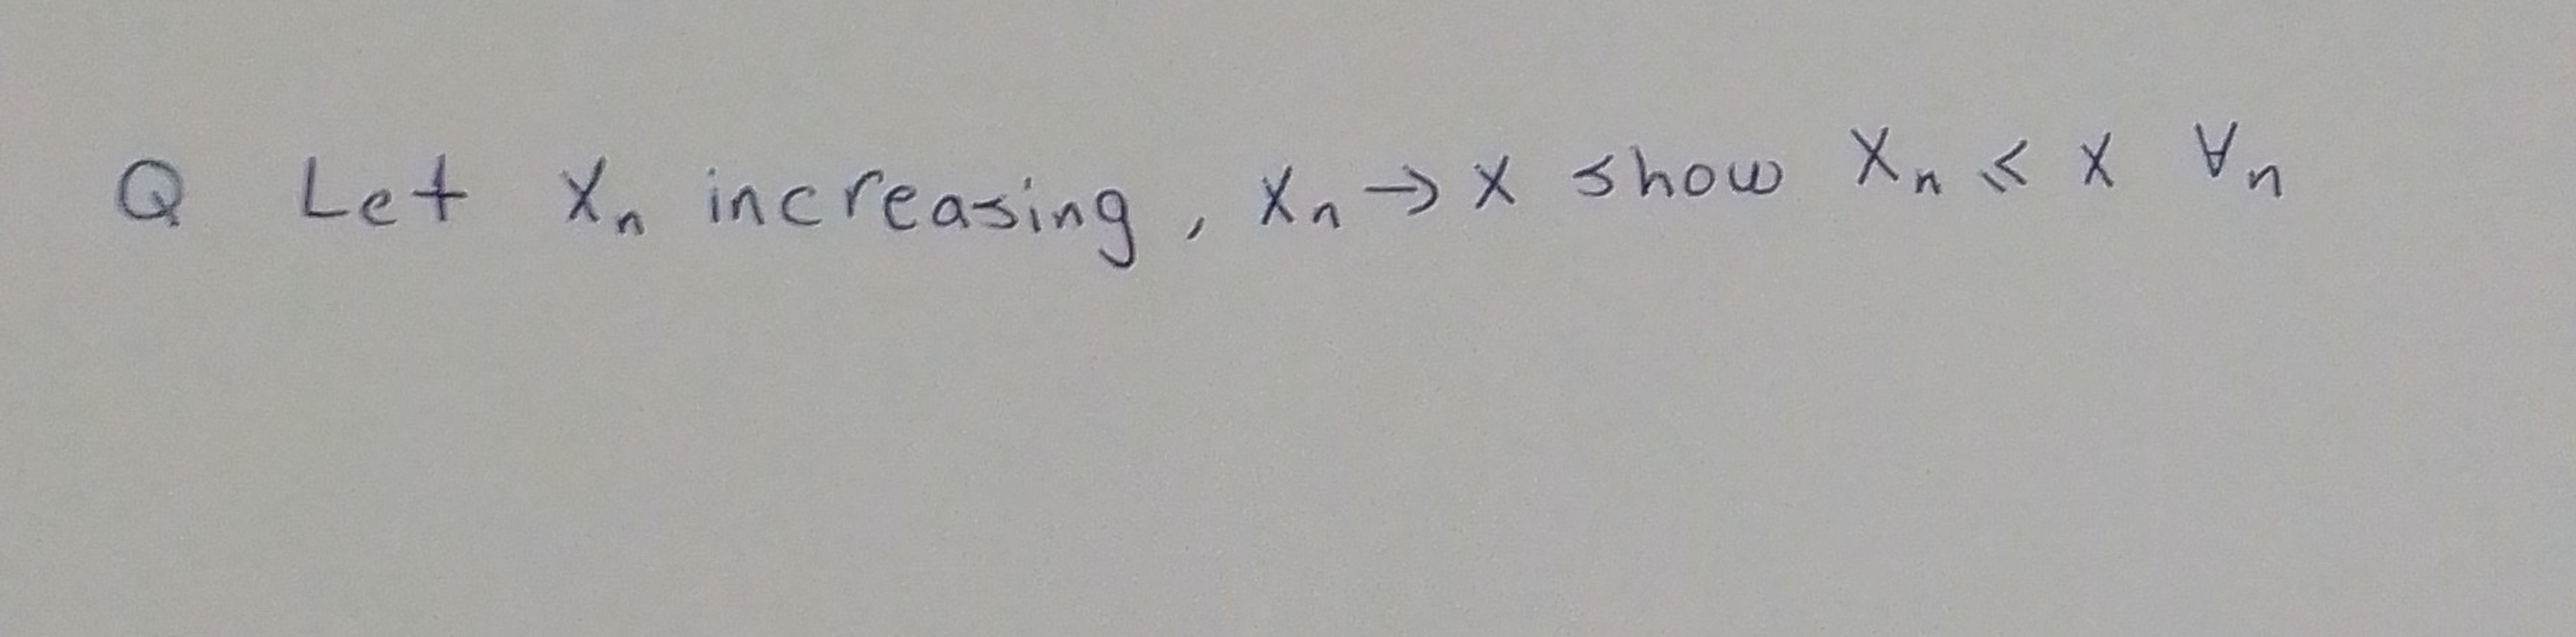 Q Let xₙ increasing, xₙ → x show xₙ ⩽ x ∀n